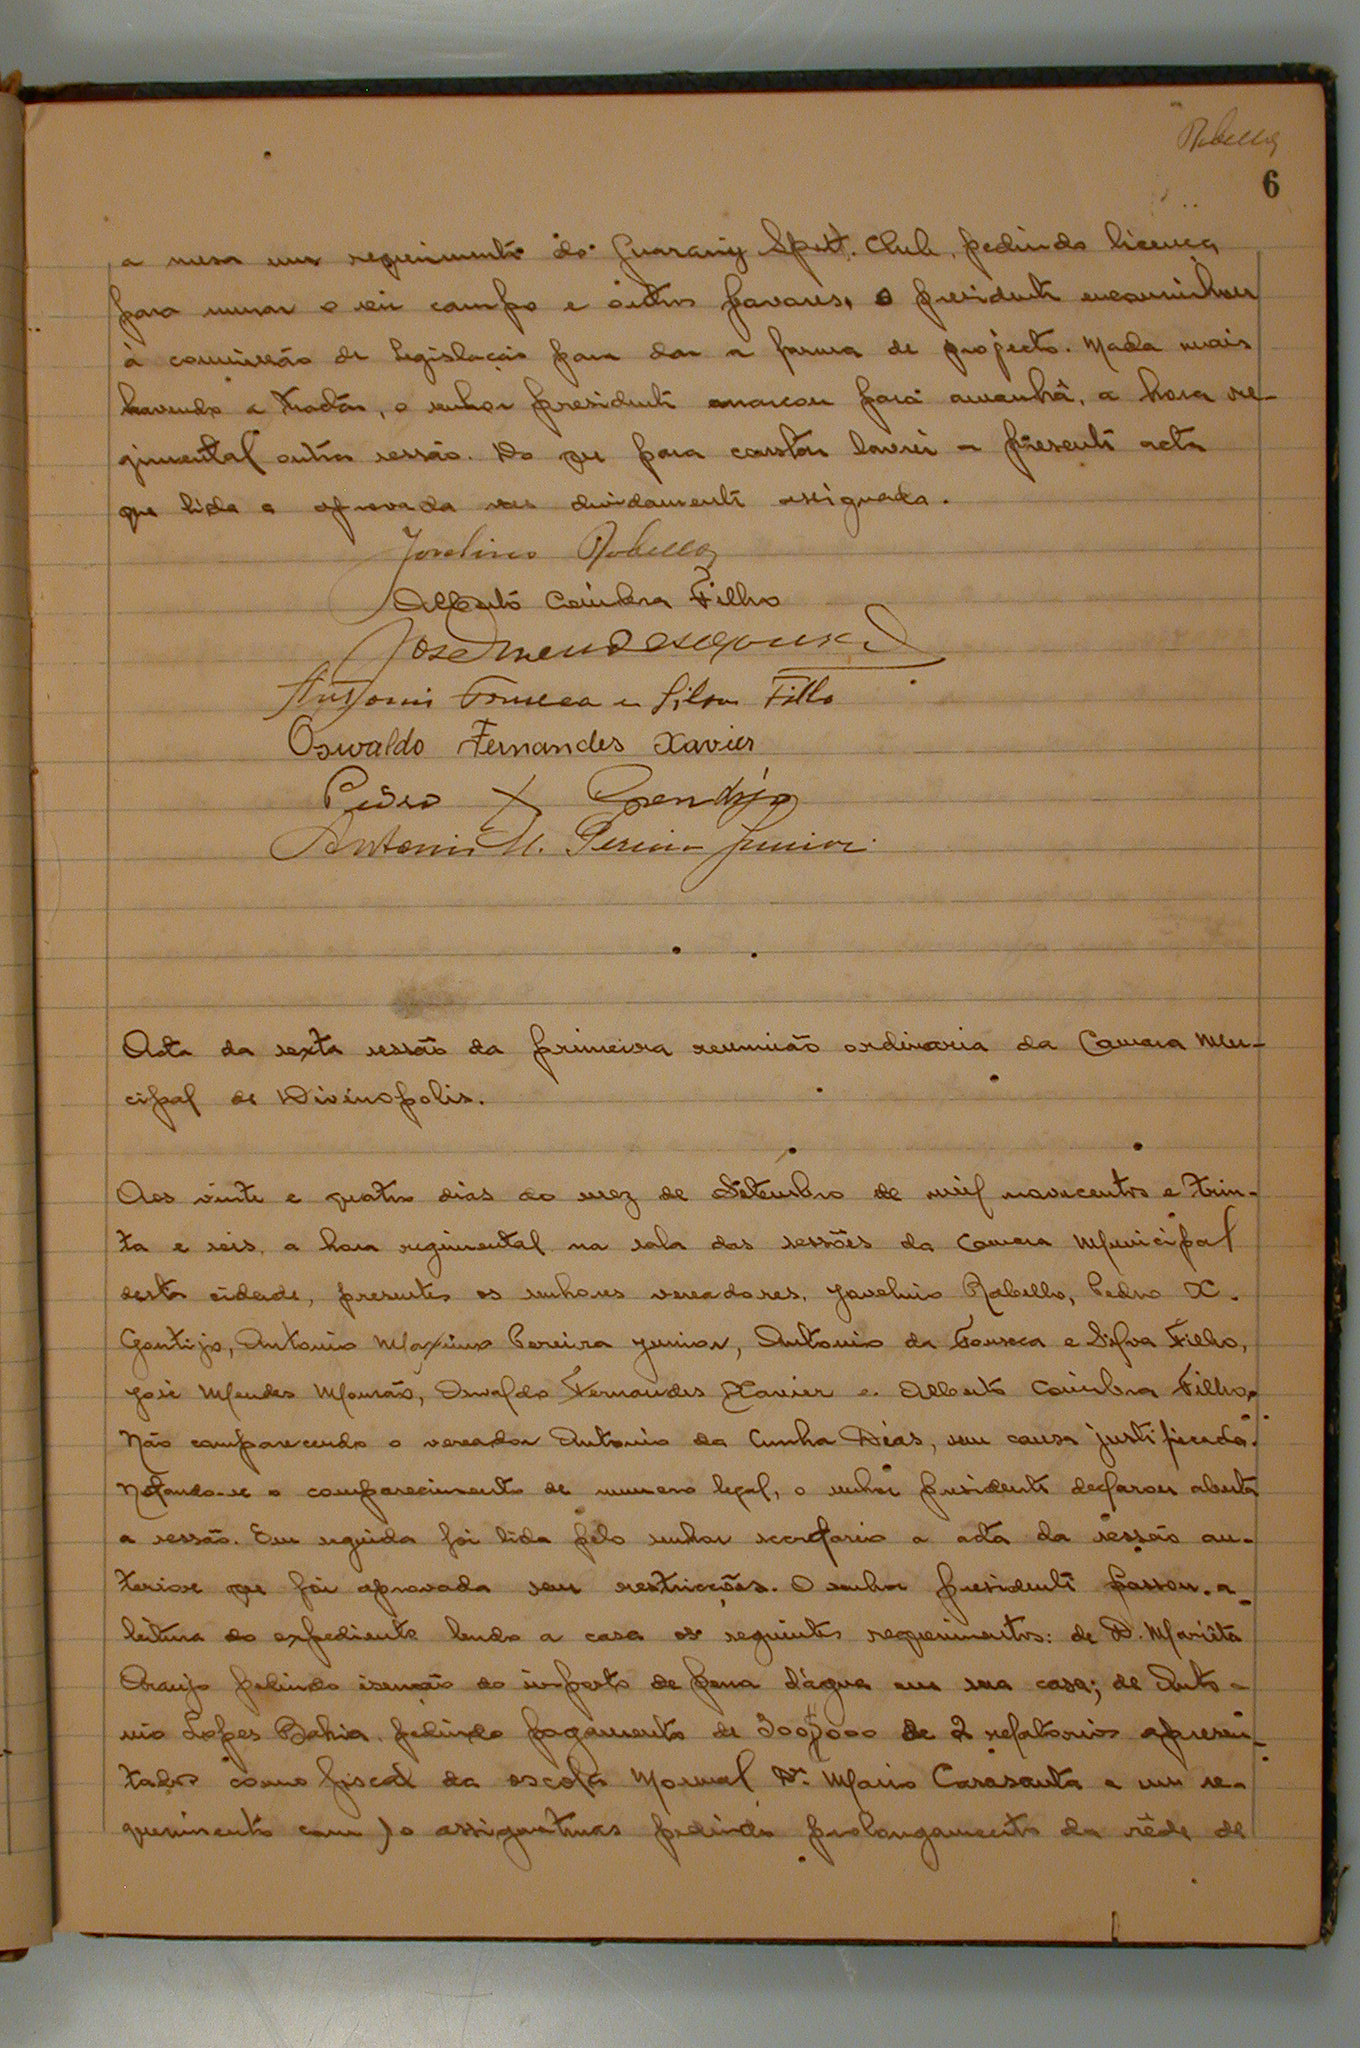 Rabello
6
a mesa um requerimento do Guarany Sport. Club, pedindo licença
para murar o seu campo e outros favores, o presidente encaminhou
à comissão de legislação para dar a forma de projecto. Nada mais
havendo a tratar, o senhor presidente marcou para amanhã, a hora re-
gimental outra sessão. Do que para constar lavrei a presente acta
que lida e aprovada vae dividamente assignada.
Jovelino Rabello
Alberto Coimbra Filho
José Mendes Mourão
Antonio Fonseca e Silva Filho
Oswaldo Fernandes Xavier
Pedro X Gontijo
Antonio M. Pereira Junior
Acta da sexta sessão da primeira reunião ordinaria da Camara Mu-
cipal de Divinopolis.
Aos vinte e quatro dias do mez de Setembro de mil novecentos e trin-
ta e seis, a hora regimental na sala das sessões da Camara Municipal
desta cidade, presentes os senhores vereadores, Jovelino Rabello, Pedro X.
Gontijo, Antonio Maximo Pereira Junior, Antonio da Fonseca e Silva Filho,
José Mendes Mourão, Oswaldo Fernandes Xavier e Alberto Coimbra Filho,
Não comparecendo o vereador Antonio da Cunha Dias, sem causa justificada.
Notando-se o comparecimento de numero legal, o senhor presidente declarou aberta
a sessão. Em seguida foi lida pelo senhor secretario a acta da sessão an-
terior que foi aprovada sem restricções. O senhor presidente passou a
leitura do expediente lendo a casa os seguintes requerimentos: de D. Mariêta
Araujo pedindo isenção do imposto de pena d'água em sua casa; de Anto-
nio Lopes Bahia pedindo pagamento de 300$000 de 2 relatorios apresen-
tados como fiscal da escola Normal Dr. Mario Casasanta e um re-
querimento com assignaturas pedindo prolongamento da rêde de